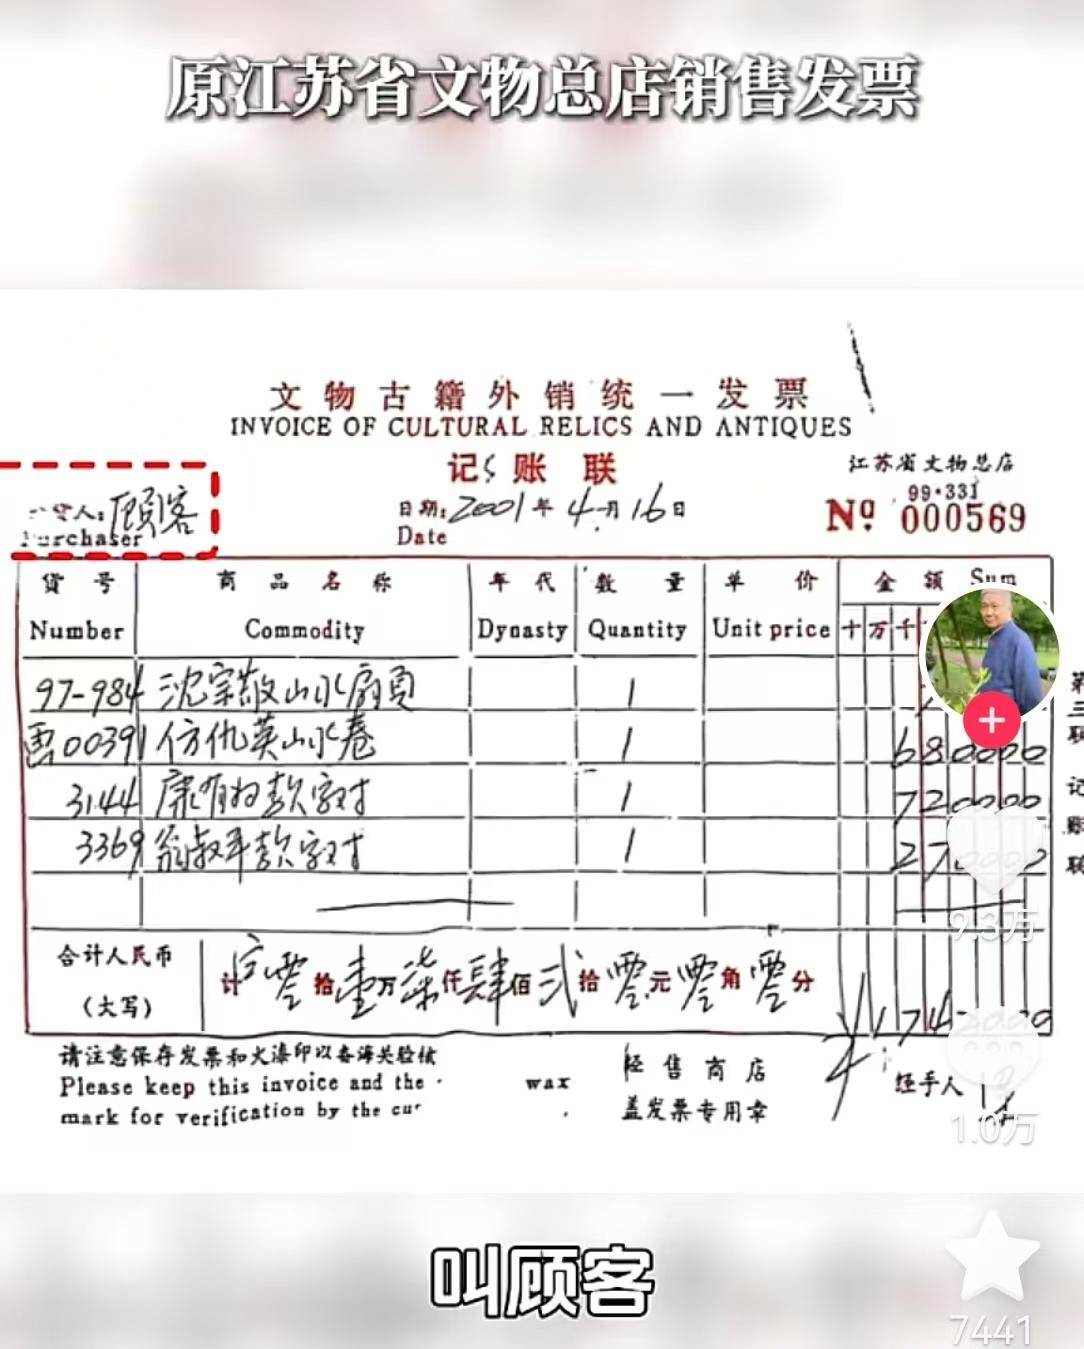 原江苏省文物总店销售发票
文物古籍外销统一发票
INVOICE OF CULTURAL RELICS AND ANTIQUES
记账联
江苏省文物总店
99·331
Nº 000569
货人：顾客
Purchaser
日期：2001年4月16日
Date
货号 商品名称 年代 数量 单价 金额 Sum
Number Commodity Dynasty Quantity Unit price 十万千
97-984 沈宗敬山水扇页 1
画00391 仿仇英山水卷 1 680000
3144 康有为款字对 1 720000
3369 翁叔平款字对 1 270000
第三联 记账联
合计人民币
（大写）
计 零拾壹万柒仟肆佰弍拾零元零角零分
请注意保存发票和火漆印以备海关验核
Please keep this invoice and the wax
mark for verification by the cu
经售商店
盖发票专用章
经手人
9.3万
1.0万
叫顾客
7441